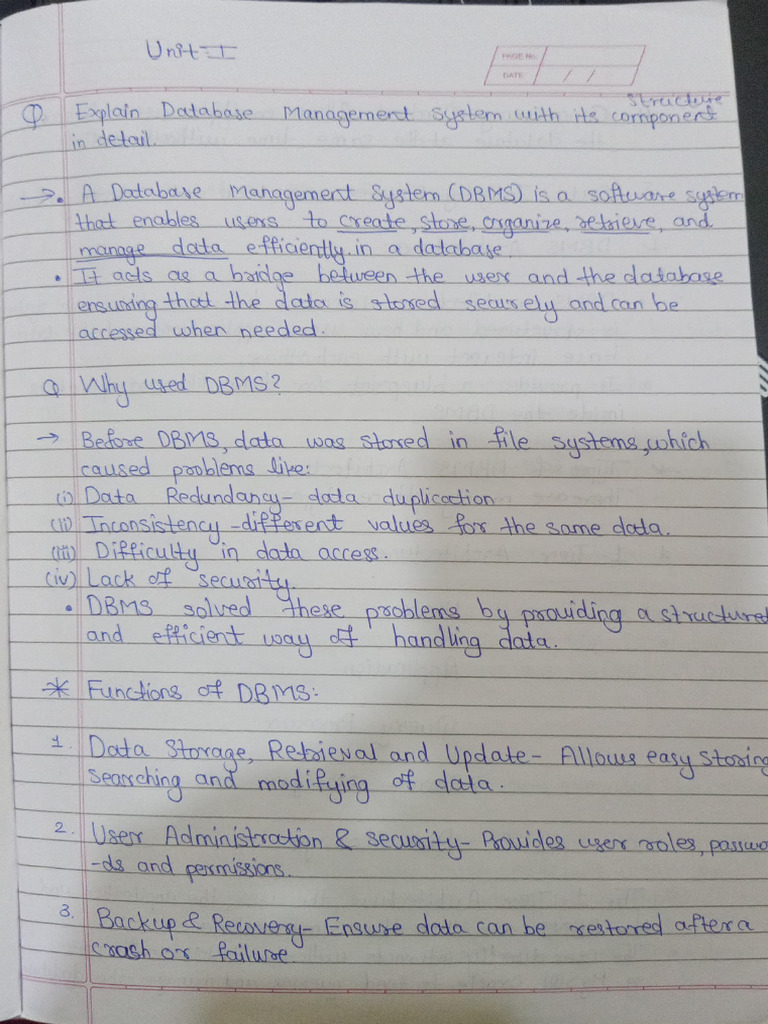 Unit-I
PAGE NO.
DATE / /
structure
Q Explain Database Management System with its component
in detail.
→ • A Database Management System (DBMS) is a software system
that enables users to create, store, organize, retrieve, and
manage data efficiently in a database.
• It acts as a bridge between the user and the database
ensuring that the data is stored securely and can be
accessed when needed.
Q Why used DBMS?
→ Before DBMS, data was stored in file systems, which
caused problems like:
(i) Data Redundancy- data duplication
(ii) Inconsistency -different values for the same data.
(iii) Difficulty in data access.
(iv) Lack of security.
• DBMS solved these problems by providing a structured
and efficient way of handling data.
* Functions of DBMS:
1. Data Storage, Retrieval and Update- Allows easy storing
searching and modifying of data.
2. User Administration & security- Provides user roles, passwo
-ds and permissions.
3. Backup & Recovery- Ensure data can be restored after a
crash or failure.